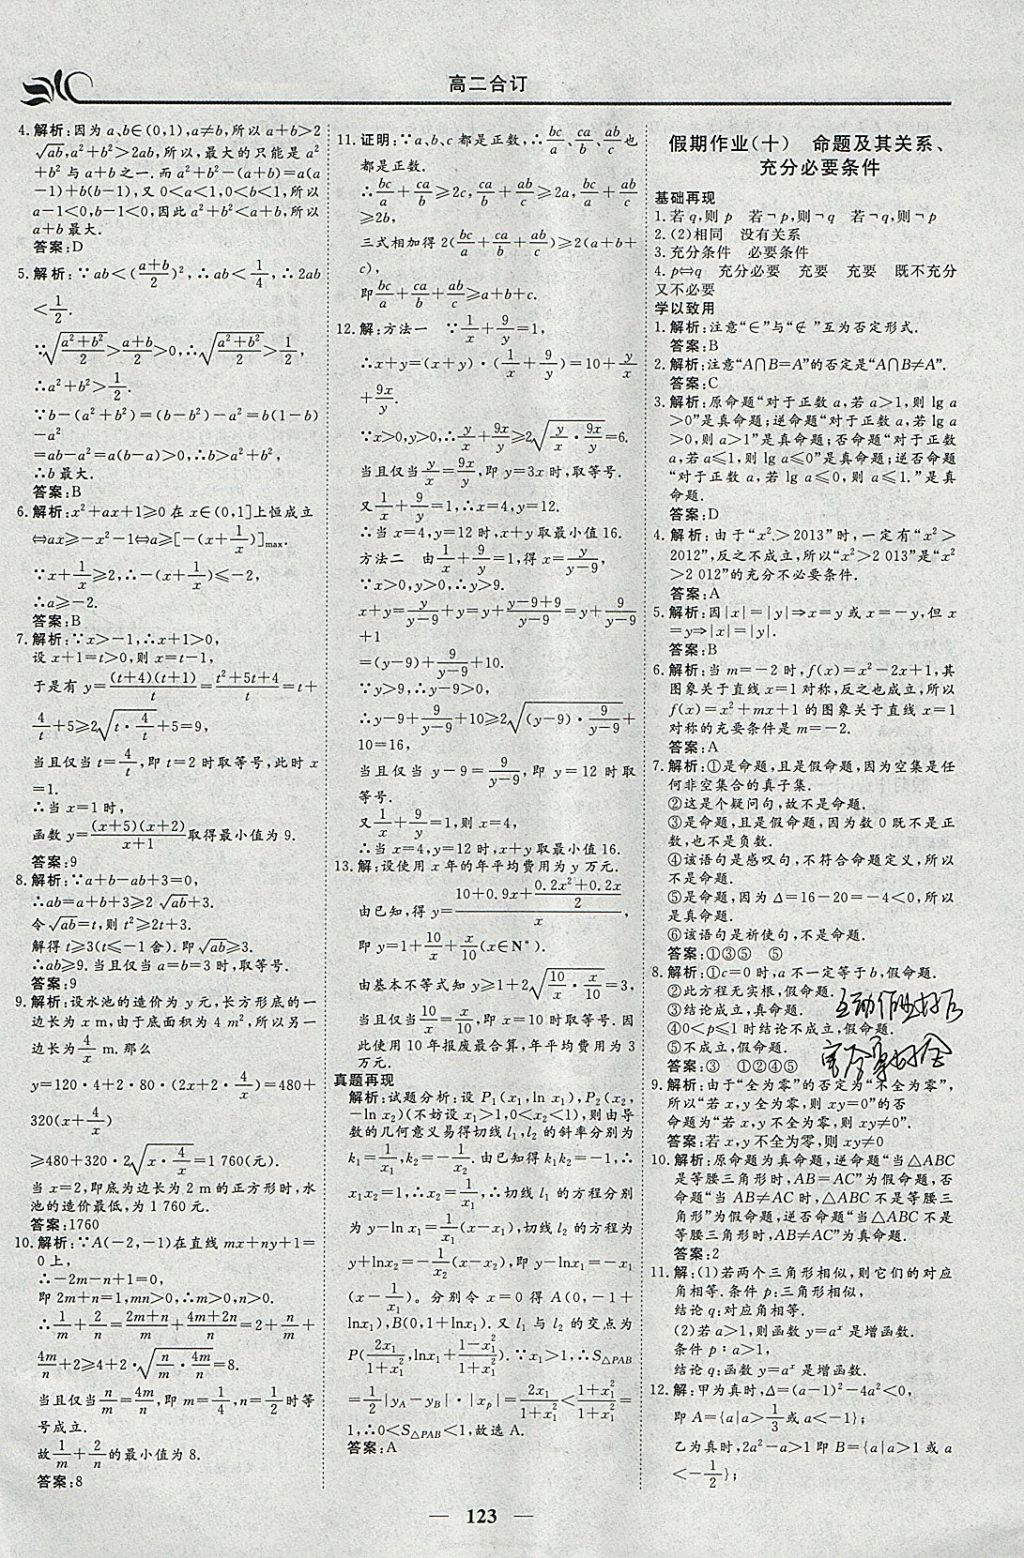 高二合订
4.解析:因为a、b∈(0,1),a≠b,所以a+b>2
√ab,a²+b²>2ab,所以,最大的只能是a²
+b²与a+b之一.而a²+b²-(a+b)=a(a
-1)+b(b-1),又0<a<1,0<b<1,所以
a-1<0,b-1<0,因此a²+b²<a+b,所以
a+b最大.
答案:D
5.解析:∵ab<((a+b)/2)²,∴ab<1/4,∴2ab
<1/2.
∵√((a²+b²)/2)>(a+b)/2>0,∴√((a²+b²)/2)>1/2,
∴a²+b²>1/2.
∵b-(a²+b²)=(b-b²)-a²=b(1-b)
-a²
=ab-a²=a(b-a)>0,∴b>a²+b²,
∴b最大.
答案:B
6.解析:x²+ax+1≥0在x∈(0,1]上恒成立
⇔ax≥-x²-1⇔a≥[-(x+1/x)]max.
∵x+1/x≥2,∴-(x+1/x)≤-2,
∴a≥-2.
答案:B
7.解析:∵x>-1,∴x+1>0,
设x+1=t>0,则x=t-1,
于是有y=(t+4)(t+1)/t=(t²+5t+4)/t=t+
4/t+5≥2√(t·4/t)+5=9,
当且仅当t=4/t,即t=2时取等号,此时x
=1.
∴当x=1时,
函数y=(x+5)(x+2)/(x+1)取得最小值为9.
答案:9
8.解析:∵a+b-ab+3=0,
∴ab=a+b+3≥2√ab+3.
令√ab=t,则t²≥2t+3.
解得t≥3(t≤-1舍).即√ab≥3.
∴ab≥9.当且仅当a=b=3时,取等号.
答案:9
9.解析:设水池的造价为y元,长方形底的一
边长为x m,由于底面积为4 m²,所以另一
边长为4/x m.那么
y=120·4+2·80·(2x+2·4/x)=480+
320(x+4/x)
≥480+320·2√(x·4/x)=1 760(元).
当x=2,即底为边长为2 m的正方形时,水
池的造价最低,为1 760元.
答案:1760
10.解析:∵A(-2,-1)在直线mx+ny+1=
0上,
∴-2m-n+1=0,
即2m+n=1,mn>0,∴m>0,n>0.
∴1/m+2/n=(2m+n)/m+(4m+2n)/n=2+n/m+
4m/n+2≥4+2·√(n/m·4m/n)=8.
当且仅当n/m=4m/n,即m=1/4,n=1/2时等
号成立.
故1/m+2/n的最小值为8.
答案:8
11.证明:∵a、b、c都是正数,∴bc/a、ca/b、ab/c也
都是正数.
∴bc/a+ca/b≥2c,ca/b+ab/c≥2a,bc/a+ab/c
≥2b,
三式相加得2(bc/a+ca/b+ab/c)≥2(a+b+
c),
即bc/a+ca/b+ab/c≥a+b+c.
12.解:方法一 ∵1/x+9/y=1,
∴x+y=(x+y)·(1/x+9/y)=10+y/x
+9x/y.
∵x>0,y>0,∴y/x+9x/y≥2√(y/x·9x/y)=6.
当且仅当y/x=9x/y,即y=3x时,取等号.
又1/x+9/y=1,∴x=4,y=12.
∴当x=4,y=12时,x+y取最小值16.
方法二 由1/x+9/y=1,得x=y/(y-9).
∵x>0,y>0,∴y>9.
x+y=y/(y-9)+y=y+(y-9+9)/(y-9)=y+9/(y-9)
+1
=(y-9)+9/(y-9)+10.
∵y>9,∴y-9>0,
∴y-9+9/(y-9)+10≥2√((y-9)·9/(y-9))+
10=16,
当且仅当y-9=9/(y-9),即y=12时取
等号.
又1/x+9/y=1,则x=4,
∴当x=4,y=12时,x+y取最小值16.
13.解:设使用x年的年平均费用为y万元.
由已知,得y=(10+0.9x+(0.2x²+0.2x)/2)/x,
即y=1+10/x+x/10(x∈N*).
由基本不等式知y≥1+2√(10/x·x/10)=3,
当且仅当10/x=x/10,即x=10时取等号.因
此使用10年报废最合算,年平均费用为3
万元.
真题再现
解析:试题分析:设P₁(x₁,ln x₁),P₂(x₂,
-ln x₂)(不妨设x₁>1,0<x₂<1),则由导
数的几何意义易得切线l₁,l₂的斜率分别为
k₁=1/x₁,k₂=-1/x₂.由已知得k₁k₂=-1,∴
x₁x₂=1,∴x₂=1/x₁,∴切线l₁的方程分别
为y-ln x₁=1/x₁(x-x₁),切线l₂的方程为
y+lnx₂=-1/x₂(x-x₂),即y-lnx₁=-x₁
(x-1/x₁).分别令x=0得A(0,-1+
lnx₁),B(0,1+lnx₁).又l₁与l₂的交点为
P(2x₁/(1+x₁²),lnx₁+(1-x₁²)/(1+x₁²)).∵x₁>1,∴S△PAB
=1/2|yA-yB|·|xp|=2x₁/(1+x₁²)<(1+x₁²)/(1+x₁²)=
1,∴0<S△PAB<1,故选A.
答案:A
假期作业(十) 命题及其关系、
充分必要条件
基础再现
1.若q,则p 若¬p,则¬q 若¬q,则¬p
2.(2)相同 没有关系
3.充分条件 必要条件
4.p⇔q 充分必要 充要 充要 既不充分
又不必要
学以致用
1.解析:注意“∈”与“∉”互为否定形式.
答案:B
2.解析:注意“A∩B=A”的否定是“A∩B≠A”.
答案:C
3.解析:原命题“对于正数a,若a>1,则lg a
>0”是真命题;逆命题“对于正数a,若lg a
>0,则a>1”是真命题;否命题“对于正数
a,若a≤1,则lg a≤0”是真命题;逆否命题
“对于正数a,若lg a≤0,则a≤1”是真
命题.
答案:D
4.解析:由于“x²>2013”时,一定有“x²>
2012”,反之不成立,所以“x²>2 013”是“x²
>2 012”的充分不必要条件.
答案:A
5.解析:因|x|=|y|⇒x=y或x=-y,但x
=y⇒|x|=|y|.
答案:B
6.解析:当m=-2时,f(x)=x²-2x+1,其
图象关于直线x=1对称,反之也成立,所以
f(x)=x²+mx+1的图象关于直线x=1
对称的充要条件是m=-2.
答案:A
7.解析:①是命题,且是假命题,因为空集是任
何非空集合的真子集.
②这是个疑问句,故不是命题.
③是命题,且是假命题,因为数0既不是正
数,也不是负数.
④该语句是感叹句,不符合命题定义,所以
不是命题.
⑤是命题,因为Δ=16-20=-4<0,所以
是真命题.
⑥该语句是祈使句,不是命题.
答案:①③⑤ ⑤
8.解析:①c=0时,a不一定等于b,假命题.
②此方程无实根,假命题.
③结论成立,真命题.
④0<p≤1时结论不成立,假命题.
⑤不成立,假命题.
答案:③ ①②④⑤
9.解析:由于“全为零”的否定为“不全为零”,
所以“若x,y全为零,则xy=0”的否
命题为“若x,y不全为零,则xy≠0”.
答案:若x,y不全为零,则xy≠0
10.解析:原命题为真命题,逆命题“当△ABC
是等腰三角形时,AB=AC”为假命题,否
命题“当AB≠AC时,△ABC不是等腰三
角形”为假命题,逆否命题“当△ABC不是
等腰三角形时,AB≠AC”为真命题.
答案:2
11.解:(1)若两个三角形相似,则它们的对应
角相等.条件p:三角形相似,
结论q:对应角相等.
(2)若a>1,则函数y=aˣ是增函数.
条件p:a>1,
结论q:函数y=aˣ是增函数.
12.解:甲为真时,Δ=(a-1)²-4a²<0,
即A={a|a>1/3或a<-1};
乙为真时,2a²-a>1即B={a|a>1或a
<-1/2};
— 123 —